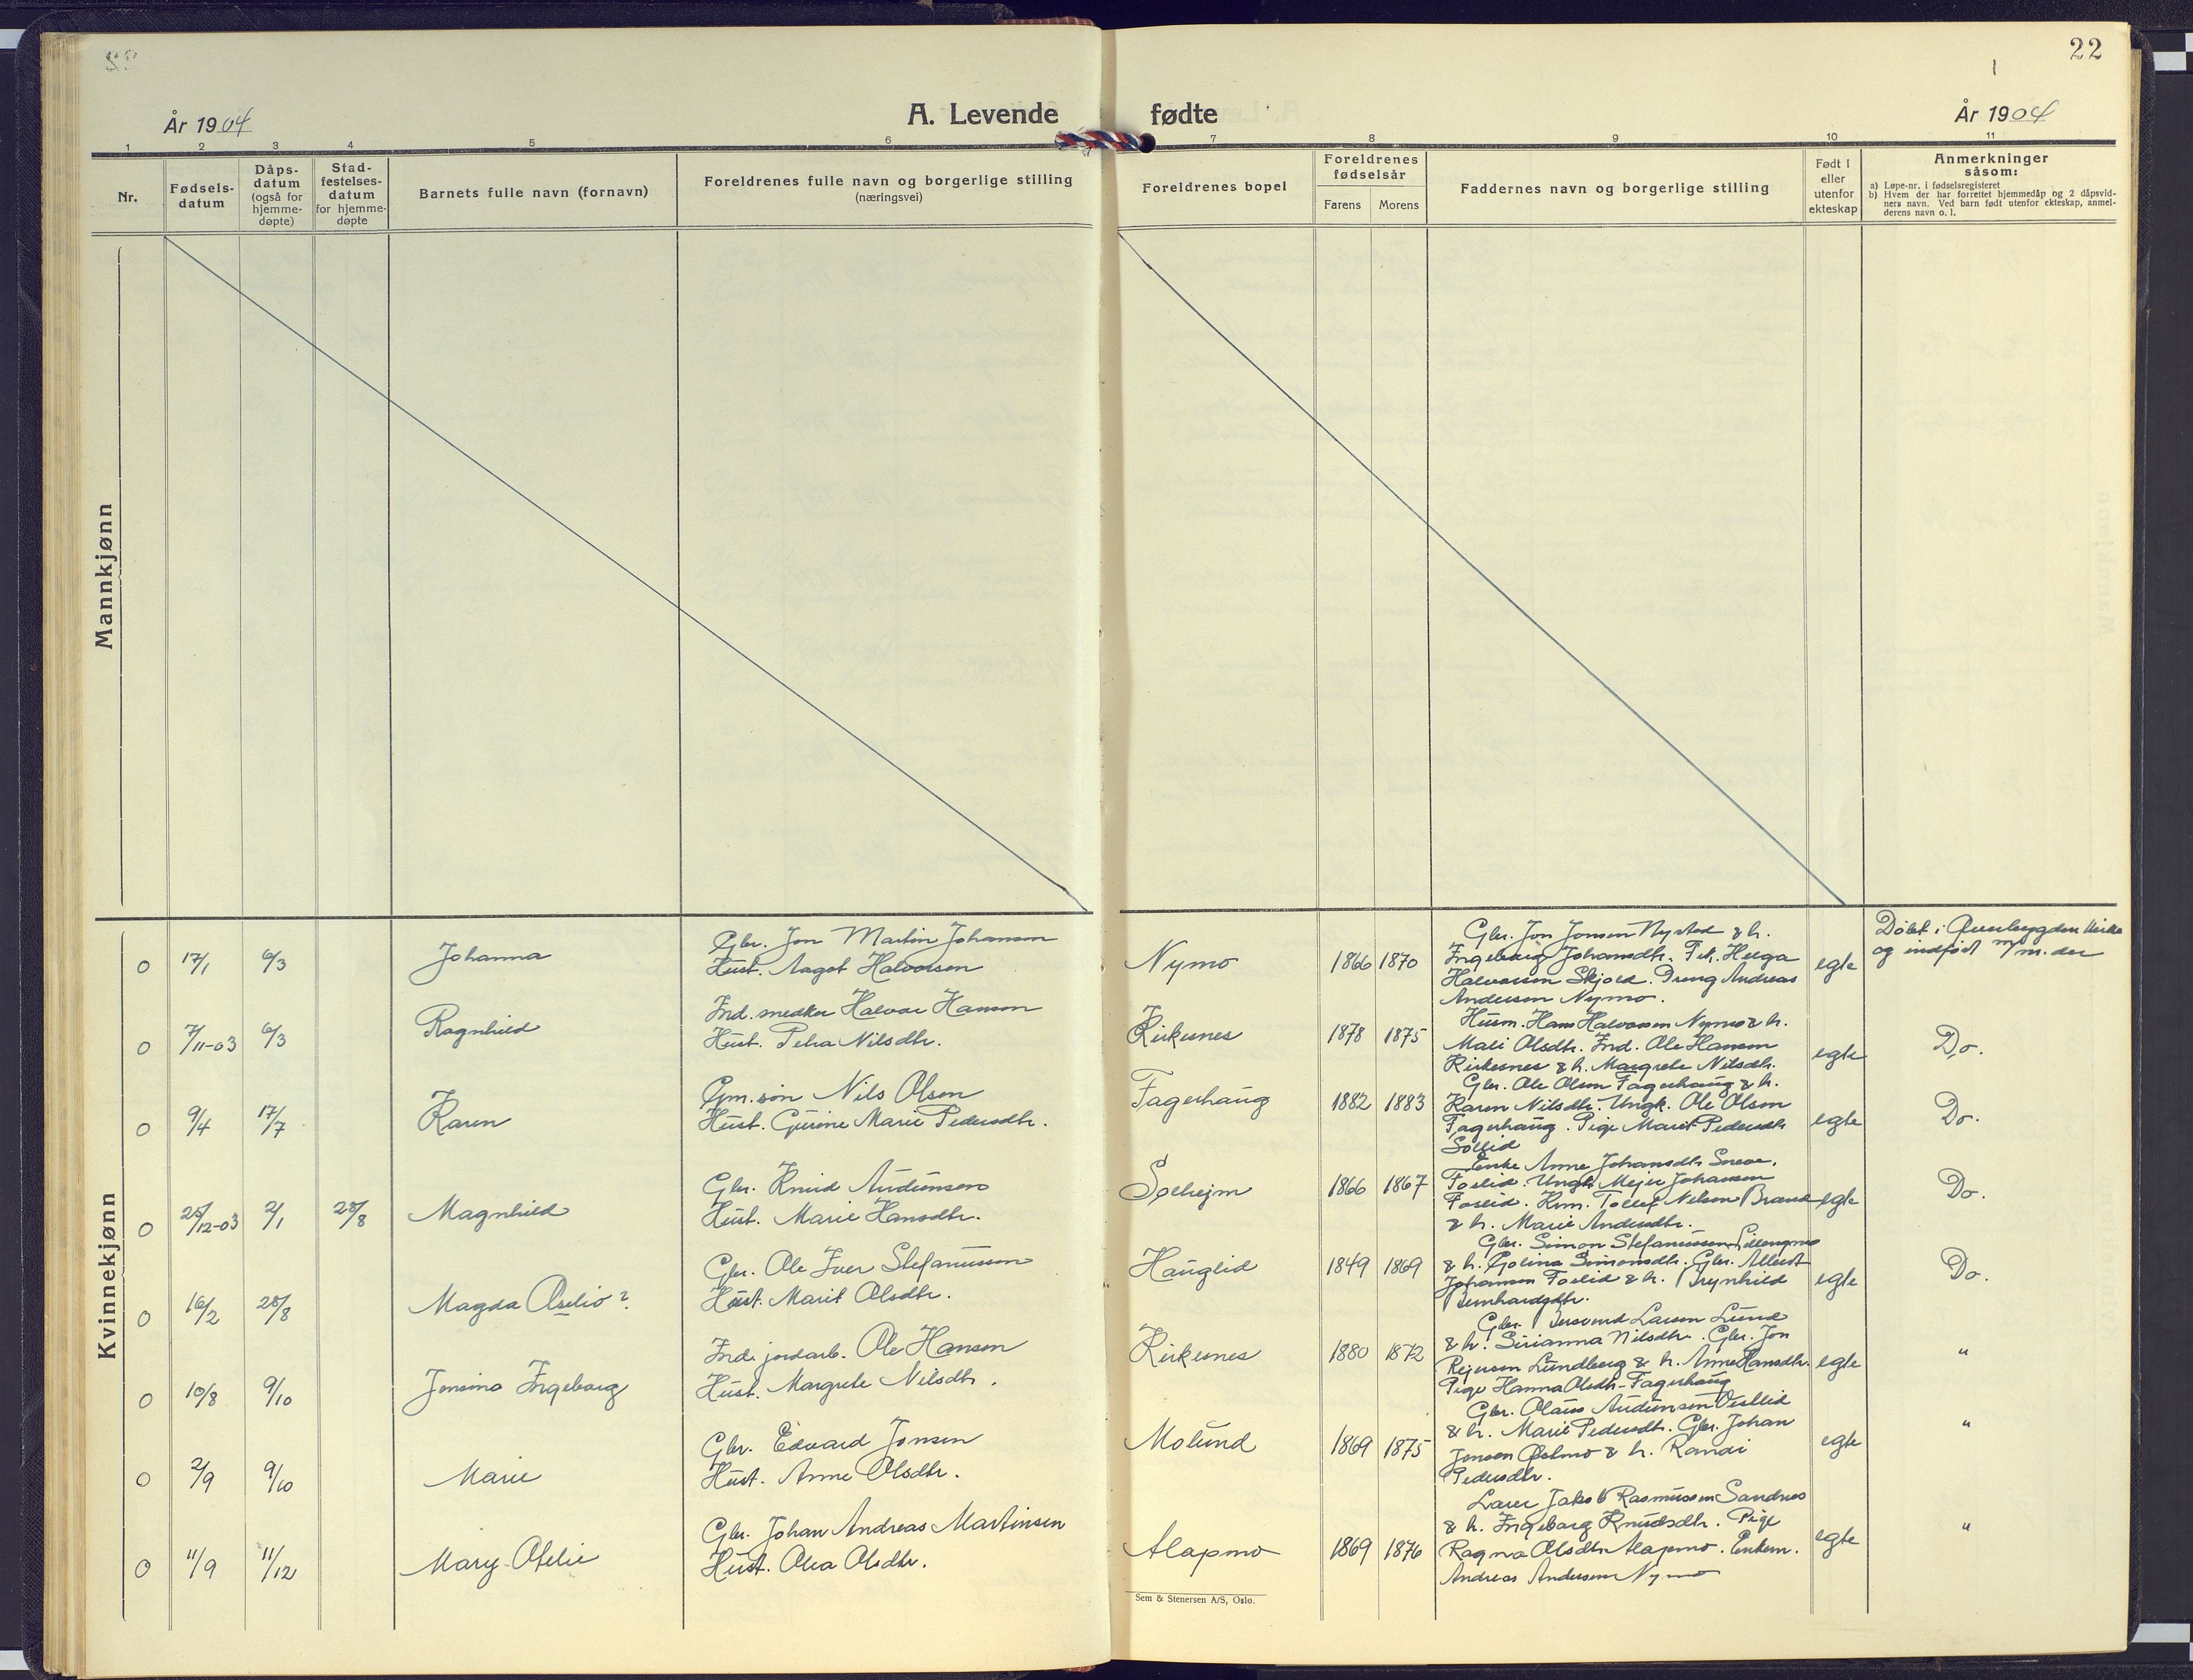 22
År 1904
A. Levende fødte
År 1904
1 2 3 4 5 6 7 8 9 10 11
Nr.
Fødsels-
datum
Dåps-
datum
(også for
hjemme-
døpte)
Stad-
festelses-
datum
for hjemme-
døpte
Barnets fulle navn (fornavn)
Foreldrenes fulle navn og borgerlige stilling
(næringsvei)
Foreldrenes bopel
Foreldrenes
fødselsår
Farens Morens
Faddernes navn og borgerlige stilling
Født i
eller
utenfor
ekteskap
Anmerkninger
såsom:
a) Løpe-nr. i fødselsregisteret
b) Hvem der har forrettet hjemmedåp og 2 dåpsvid-
ners navn. Ved barn født utenfor ekteskap, anmel-
derens navn o. l.
Mannkjønn
Kvinnekjønn
0 17/1 6/3 Johanna
Gbr. Jon Martin Johansen
Hust. Aagot Halvorsen
Nymo 1866 1870
Gbr. Jon Jonsen Nystad & h.
Ingeborg Johansdtr. Frk. Helga
Halvorsen Skjold. Dreng Andreas
Andersen Nymo.
egte
Døbt i kirke
og indført
0 7/11-03 6/3 Ragnhild
Ind. snedker Halvor Hansen
Hust. Petra Nilsdtr.
Kirkesnes 1878 1875
Husm. Hans Halvorsen Nymo & h.
Mali Olsdtr. Ind. Ole Hansen
Kirkesnes & h. Margrete Nilsdtr.
egte Do.
0 9/4 17/7 Karen
Gm. søn Nils Olsen
Hust. Gurine Marie Pedersdtr.
Fagerhaug 1882 1883
Gbr. Ole Olsen Fagerhaug & h.
Karen Nilsdtr. Ungk. Ole Olsen
Fagerhaug. Pige Marit Pedersdtr
Sollid
egte Do.
0 25/12-03 2/1 28/8 Magnhild
Gbr. Knud Audunsen
Hust. Marie Hansdtr.
Solhejm 1866 1867
Enke Anne Johansdtr
Foslid. Ungk Mejer Johansen
Foslid. Hm. Tollef Nelson Brand
& h. Marie Andersdtr.
egte Do.
0 16/2 28/8 Magda Oselio?
Gbr. Ole Iver Stefanussen
Hust. Marit Olsdtr.
Hauglid 1849 1869
Gbr. Simon Stefanussen Lillengmo
& h. Golina Simonsdtr. Gbr. Albert
Johansen Foslid & h. Brynhild
Bernhardsdtr.
egte Do.
0 10/8 9/10 Jonsine Ingeborg
Ind. jordarb. Ole Hansen
Hust. Margrete Nilsdtr.
Kirkesnes 1880 1872
Gbr. Larsen Lund
& h. Sirianna Nilsdtr. Gbr. Jon
Rejersen Lundberg & h. Anne Hansdtr.
Pige Hanna Olsdtr. Fagerhaug
egte "
0 2/9 9/10 Marie
Gbr. Edvard Jonsen
Hust. Anne Olsdtr.
Molund 1869 1875
Gbr. Olaus Audunsen Vestlid
& h. Marie Pedersdtr. Gbr. Johan
Jonsen Østmo & h. Randi
Pedersdtr.
egte "
0 11/9 11/12 Mary Ofelie
Gbr. Johan Andreas Martinsen
Hust. Olea Olsdtr.
Alapmo 1869 1876
Lærer Jakob Rasmussen Sandnes
& h. Ingeborg Knudsdtr. Pige
Ragna Olsdtr. Alapmo. Enkem.
Andreas Andersen Nymo
egte "
Sem & Stenersen A/S, Oslo.